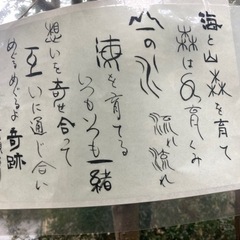 海と山森を育て
森は水育くみ
山の水流れ流れ
海を育てる
いつもいつも一緒
想いを寄せ合って
互いに通じ合い
めぐるめぐるよ奇跡